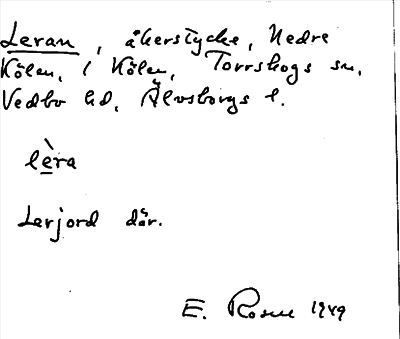 Leran, åkerstycke, Nedre
Kölen, i Kölen, Torrskogs sn,
Vedbo hd, Älvsborgs l.
lèra
Lerjord där.
E. Rosell 1949